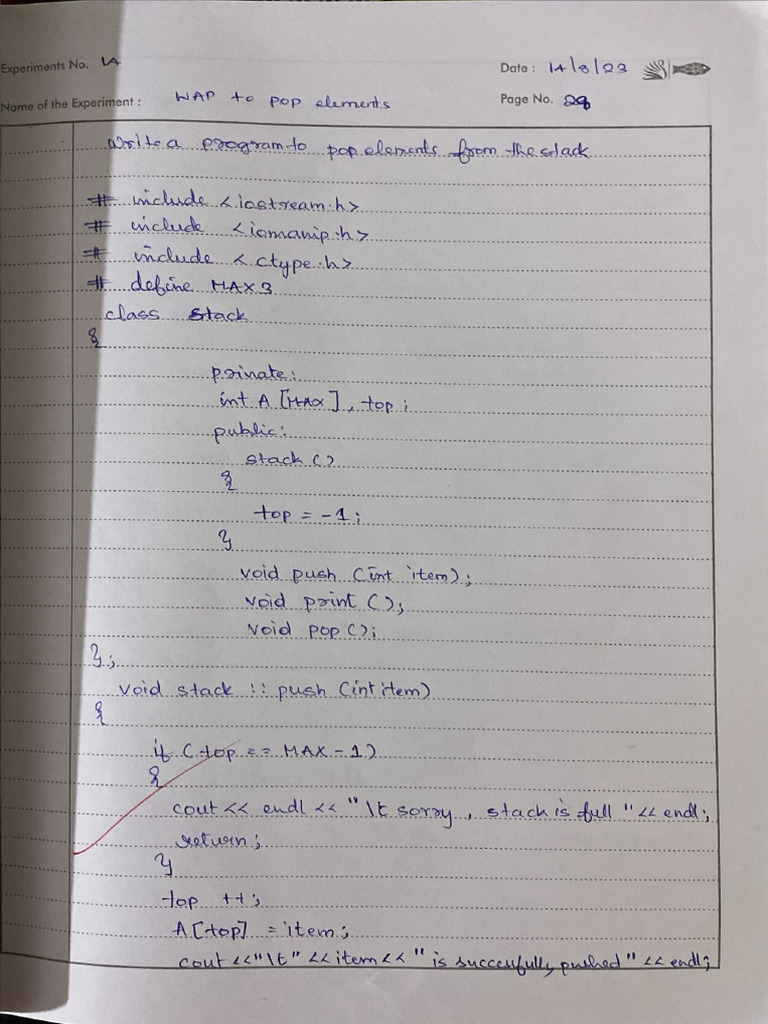 Experiments No. 14
Date : 14/8/23
Name of the Experiment : WAP to pop elements
Page No. 29
Write a program to pop elements from the stack
# include <iostream.h>
# include <iomanip.h>
# include <ctype.h>
# define MAX 3
class stack
{
private:
int A [MAX], top;
public:
stack ()
{
top = -1;
}
void push (int item);
void print ();
void pop ();
};
void stack :: push (int item)
{
if (top == MAX - 1)
{
cout << endl << "\t sorry, stack is full" << endl;
return;
}
top ++;
A[top] = item;
cout <<"\t" << item << " is succesfully pushed" << endl;